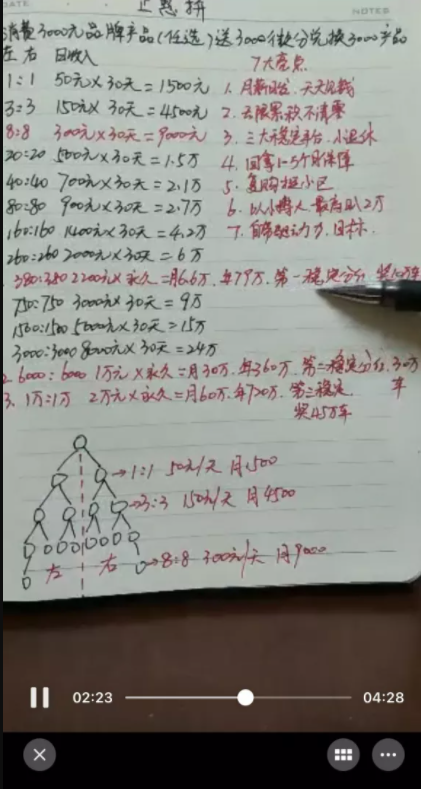 DATE
NOTES
消费3000元品牌产品(任选)送3000微分兑换3000产品
左 右 日收入
7大亮点
1:1 50元×30天=1500元
1. 月薪日发、天天见钱
3:3 150元×30天=4500元
2. 无限累积不清零
8:8 300元×30天=9000元
3. 三大稳定平台、小退休
20:20 500元×30天=1.5万
4. 回拿1-5个月保障
40:40 700元×30天=2.1万
5. 复购担小区
80:80 900元×30天=2.7万
6. 以小博大 最高日2万
160:160 1400元×30天=4.2万
7.
260:260 2000元×30天=6万
380:380 2200元×永久=月6.6万、年79万、第一稳定分红 奖10万车
750:750 3000元×30天=9万
1500:1500 5000元×30天=15万
3000:3000 8000元×30天=24万
2. 6000:6000 1万元×永久=月30万、年360万、第二稳定分红、30万车
3. 1万:1万 2万元×永久=月60万、年720万、第三稳定
奖45万车
1:1 50元/天 月1500
3:3 150元/天 月4500
左 右
8:8 300元/天 月9000
02:23
04:28